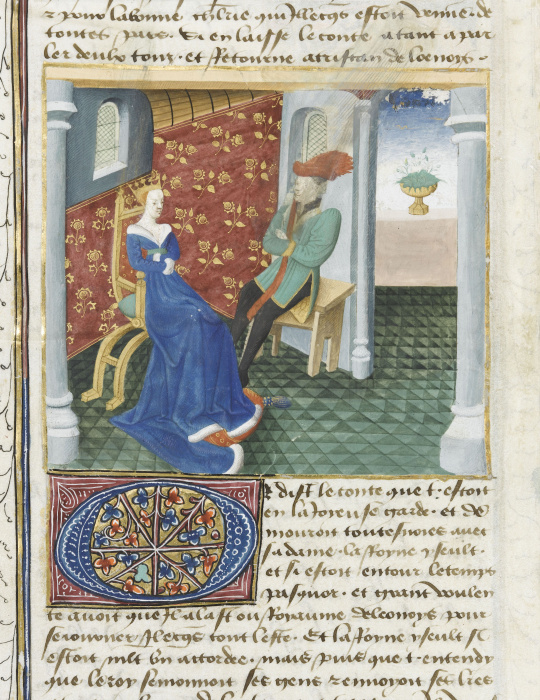 z pour la bonne chlrie qui Illecqs estoit venue de
toutes pars. Si en laisse le conte atant a par
ler deulx tous. et Retourne a tristan de loenois.
Or dist le conte que t. estoit
en la Ioieuse garde. et de
mouroit toutesuoies auec
sa dame. la Royne yseult.
et si estoit entour le temps
pasquor. et grant voulen
te auoit que Il alast ou Royaume de leonoys pour
seiourner Illecqs tout leste. Et la Royne yseult sI
estoit mlt bn accordee. mais puis que t. entendy
que le roy semonnoit ses gens z remuoyt ses